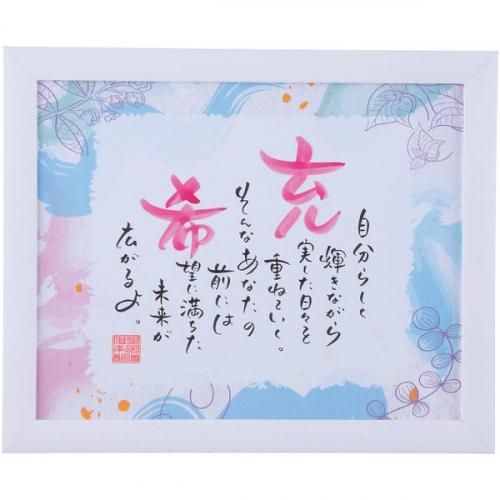 自分らしく
輝きながら
充実した日々を
重ねていく。
そんなあなたの
前には
希望に満ちた
未来が
広がるよ。